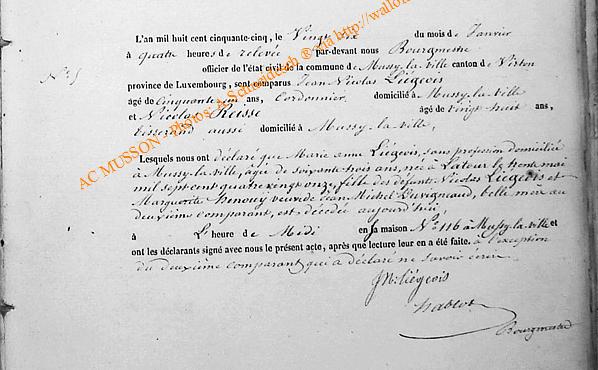 L'an mil huit cent cinquante-cinq, le Vingt six du mois de Janvier
à quatre heures de relevée par-devant nous Bourgmestre
officier de l'état civil de la commune de Mussy-la-ville canton de Virton
N° 5
province de Luxembourg, sont comparus Jean Nicolas Liégeois
âgé de Cinquante un ans, Cordonnier domicilié à Mussy-la-ville
et Nicolas Reisse âgé de vingt huit ans,
tisserand aussi domicilié à Mussy-la-ville,
Lesquels nous ont déclaré que Marie anne Liégeois, sans profession domiciliée
à Mussy-la-ville, agée de soixante trois ans, née à Latour le trente mai
mil sept cent quatre vingt onze, fille des défunts Nicolas Liégeois et
Marguerite henoux veuve de Jean Michel Duvigneaud, belle mère au
deuxième comparant, est décédée aujourd'hui
à L'heure de Midi en sa maison N° 116 à Mussy-la-ville et
ont les déclarants signé avec nous le présent acte, après que lecture leur en a été faite. à l'exception
du deuxième comparant qui a déclaré ne savoir écrire
JN: Liégeois
Bourgmestre
AC MUSSON - Photos: A Schmideisch ® via http://wallo